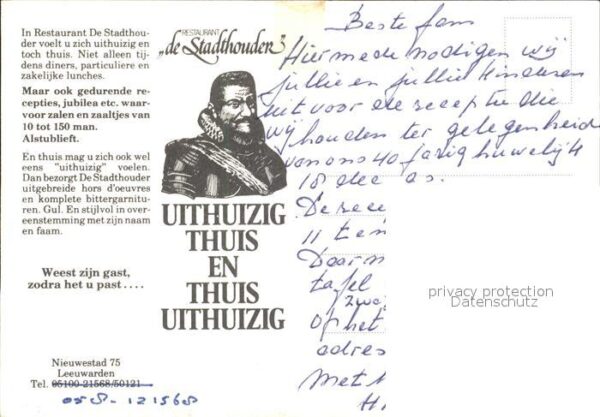 In Restaurant De Stadthou-
der voelt u zich uithuizig en
toch thuis. Niet alleen tij-
dens diners, particuliere en
zakelijke lunches.
Maar ook gedurende re-
cepties, jubilea etc. waar-
voor zalen en zaaltjes van
10 tot 150 man.
Alstublieft.
En thuis mag u zich ook wel
eens "uithuizig" voelen.
Dan bezorgt De Stadthouder
uitgebreide hors d'oeuvres
en komplete bittergarnitu-
ren. Gul. En stijlvol in over-
eenstemming met zijn naam
en faam.
Weest zijn gast,
zodra het u past . . . .
Nieuwestad 75
Leeuwarden
Tel. 05100-21568/50121
058-121568
RESTAURANT
„de Stadthouder"
UITHUIZIG
THUIS
EN
THUIS
UITHUIZIG
Beste fam
Hiermede nodigen wij
jullie en jullie kinderen
uit voor de receptie die
wij houden ter gelegenheid
van ons 40 jarig huwelijk
18 dec as.
De rece
11 ten
Daarn
tafel
zwe
Op het
adres
Met
H.
privacy protection
Datenschutz